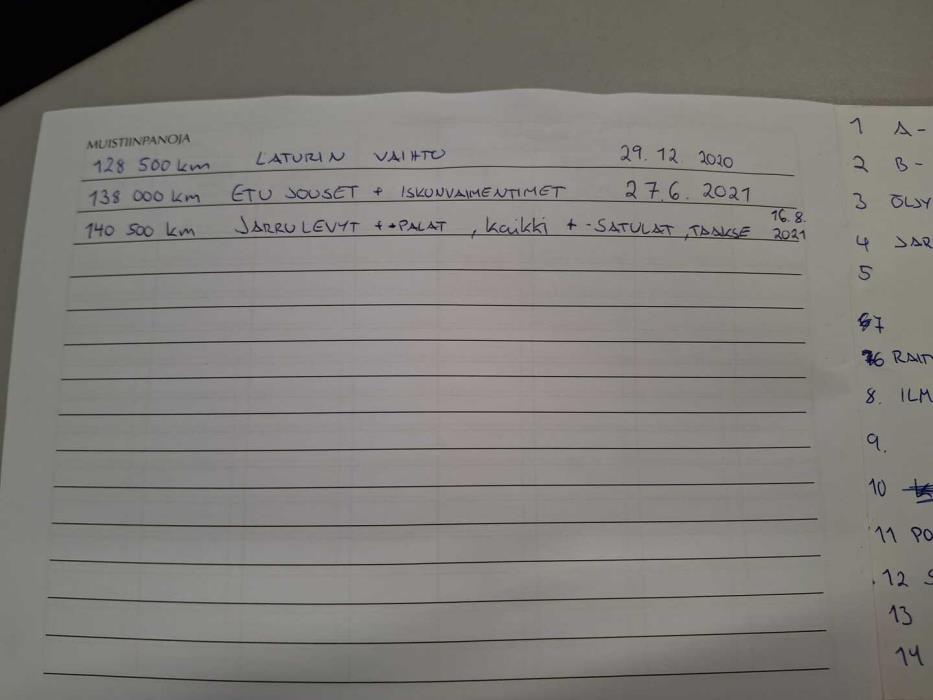 MUISTIINPANOJA
128 500 km LATURIN VAIHTO 29. 12. 2020
138 000 km ETU JOUSET + ISKUNVAIMENTIMET 27.6. 2021
140 500 km JARRULEVYT + -PALAT , Kaikki + -SATULAT , TAAKSE 16.8. 2021
1 A-
2 B-
3 ÖLJY
4 JAR
5
7
6 RAIT
8. ILM
9.
10
11 PO
12 S
13
14